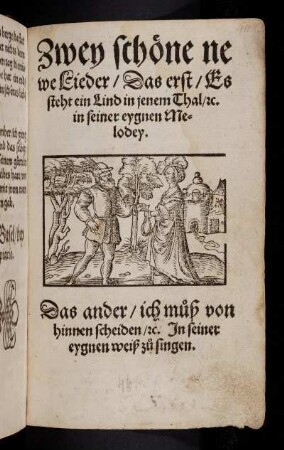 Zwey schöne ne
we Lieder / Das erst / Es
steht ein Lind in jenem Thal / ꝛc.
in seiner eygnen Me-
lodey.
Das ander / ich muͦß von
hinnen scheiden / ꝛc. In seiner
eygnen weiß zuͦ singen.